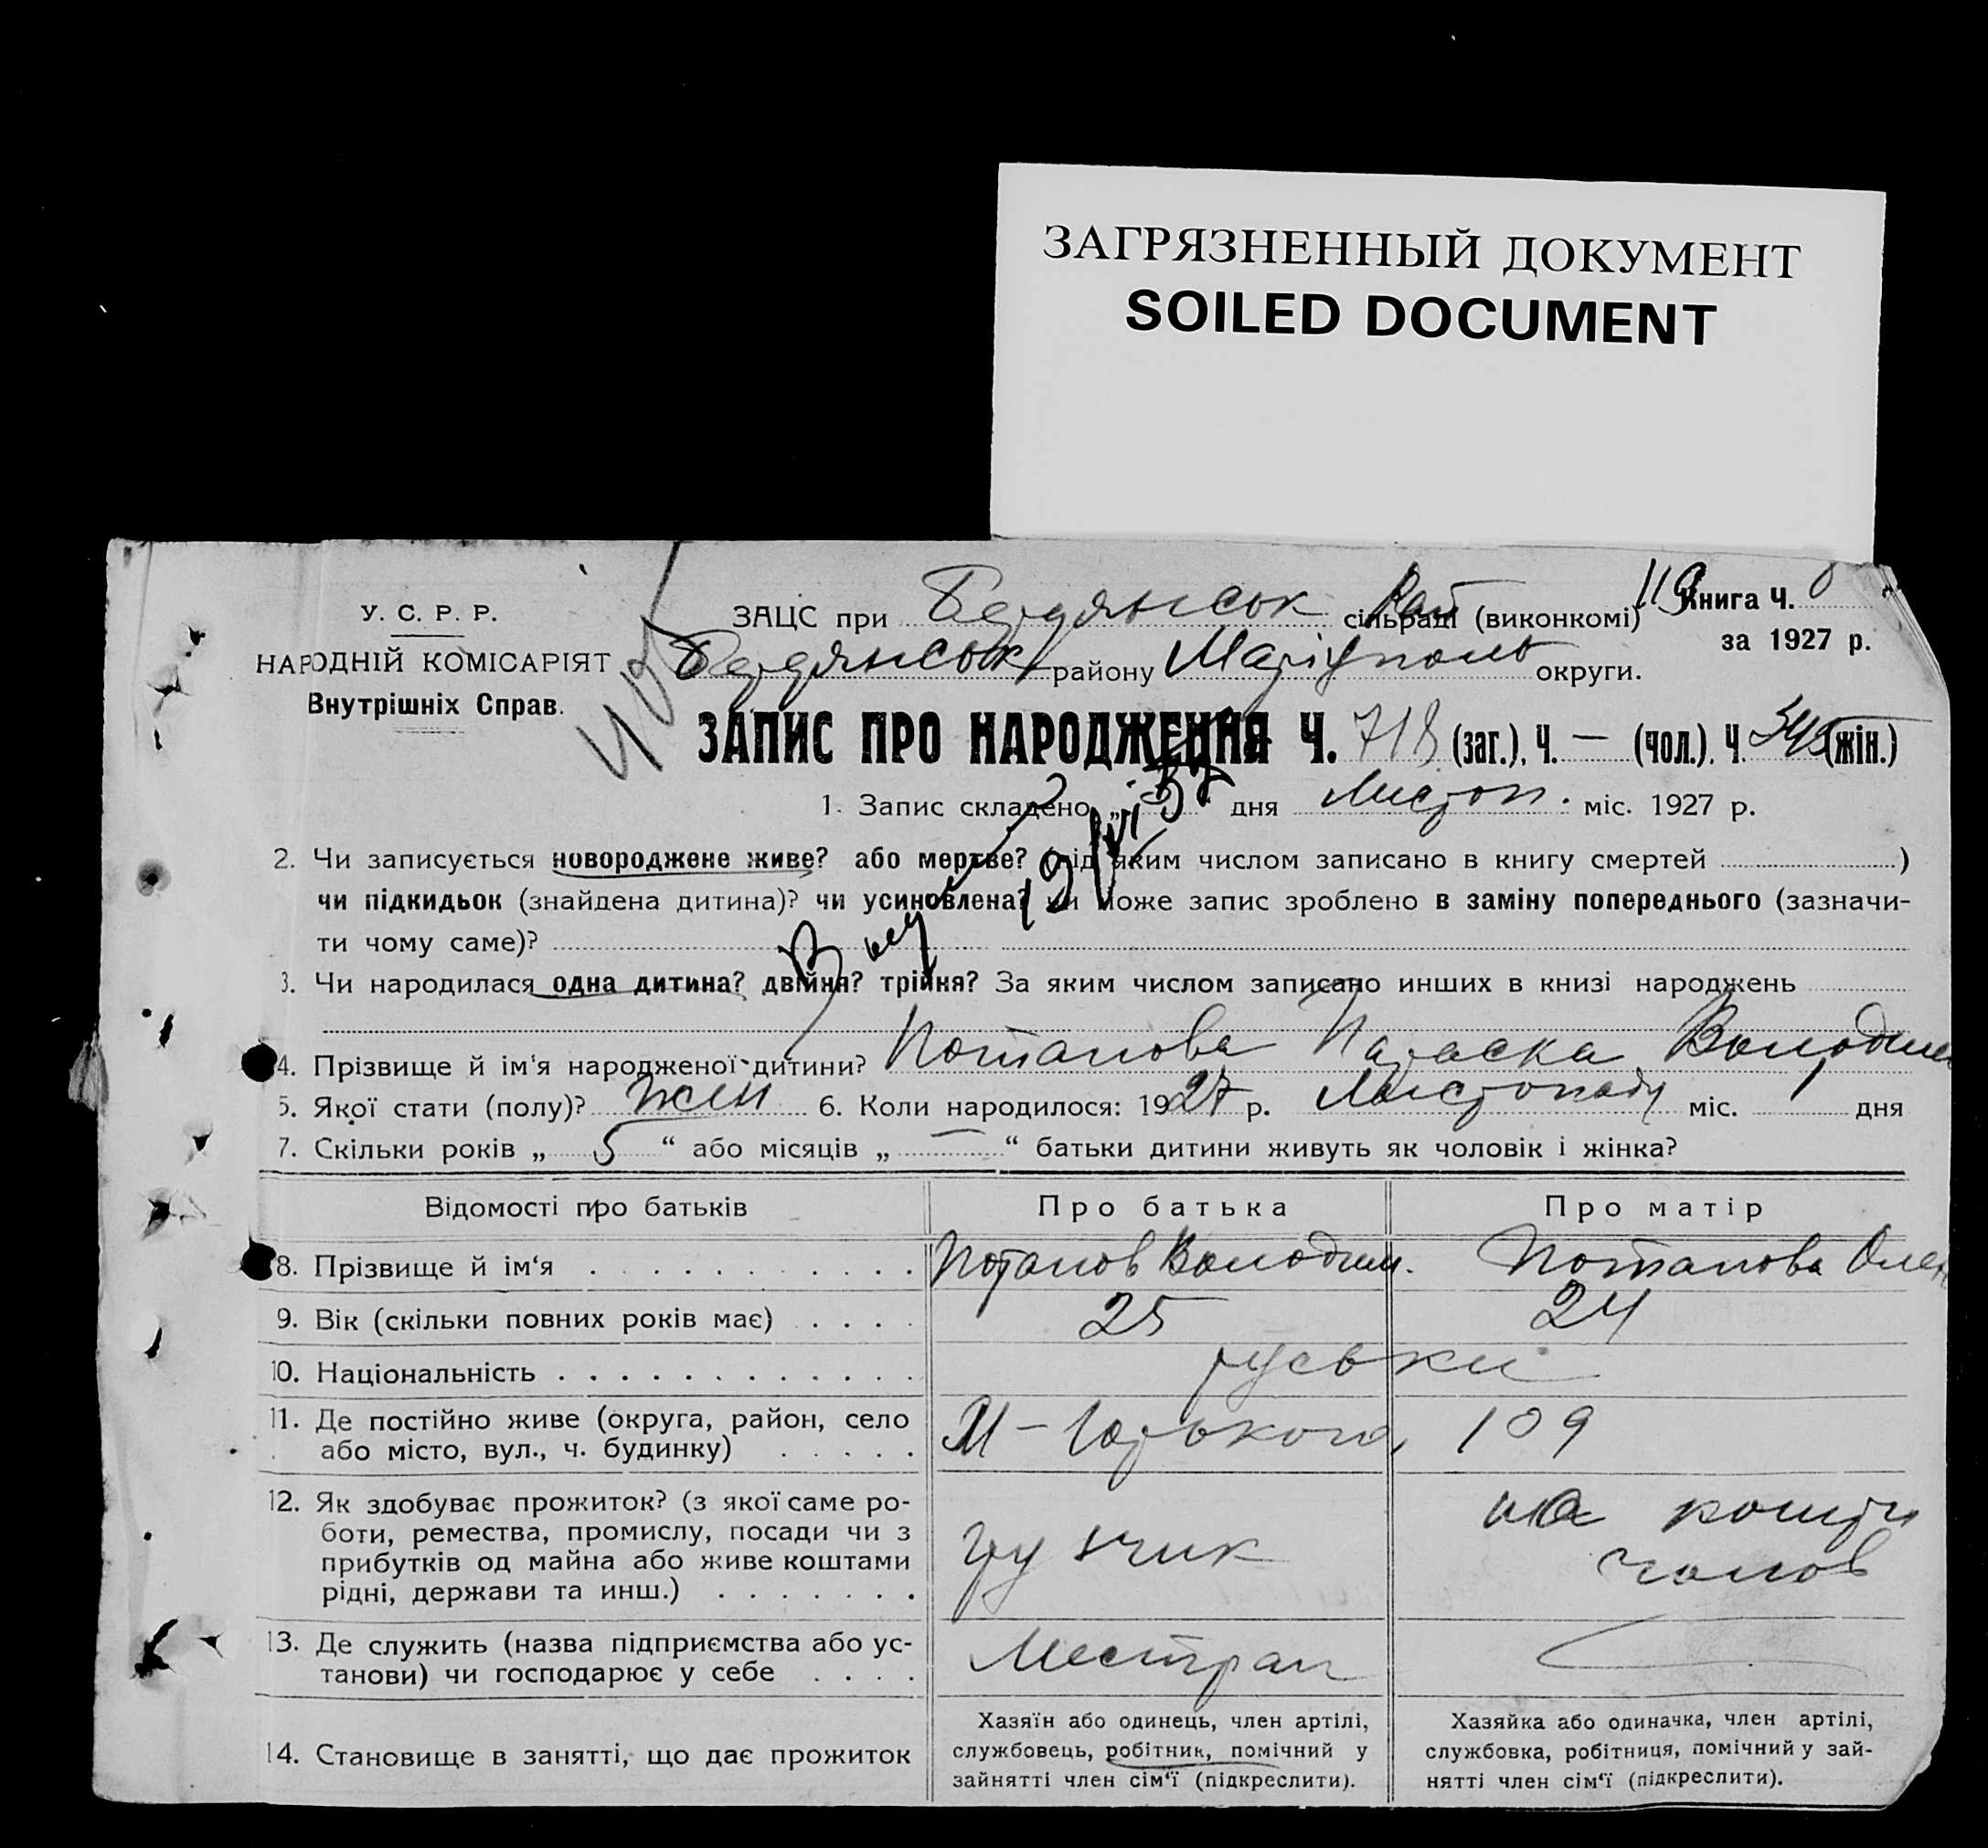 ЗАГРЯЗНЕННЫЙ ДОКУМЕНТ
SOILED DOCUMENT
У. С. Р. Р.
НАРОДНІЙ КОМІСАРІЯТ
Внутрішніх Справ.
ЗАЦС при Бердянськ сільраді Рай (виконкомі)
Книга Ч.
за 1927 р.
Бердянськ району Маріуполь округи.
ЗАПИС ПРО НАРОДЖЕННЯ Ч. 718 (заг.), Ч. — (чол.). Ч. 345 (жін.)
1. Запис складено „ “ дня Листоп. міс. 1927 р.
2. Чи записується новороджене живе? або мертве? (під яким числом записано в книгу смертей )
чи підкидьок (знайдена дитина)? чи усиновлена? чи може запис зроблено в заміну попереднього (зазначи-
ти чому саме)?
3. Чи народилася одна дитина? двійня? трійня? За яким числом записано инших в книзі народжень
4. Прізвище й ім‘я народженої дитини? Потапова Параска Володим
5. Якої стати (полу)? жін 6. Коли народилося: 1927 р. Листопаду міс. 1 дня
7. Скільки років „ 5 “ або місяців „ — “ батьки дитини живуть як чоловік і жінка?
Відомості про батьків Про батька Про матір
8. Прізвище й ім‘я Потапов Володим. Потапова Олен
9. Вік (скільки повних років має) 25 24
10. Національність руські
11. Де постійно живе (округа, район, село
або місто, вул., ч. будинку) М-Горького, 109
12. Як здобуває прожиток? (з якої саме ро-
боти, ремества, промислу, посади чи з
прибутків од майна або живе коштами
рідні, держави та инш.) грузчик на кошти
чолов
13. Де служить (назва підприємства або ус-
танови) чи господарює у себе Местран —
14. Становище в занятті, що дає прожиток
Хазяїн або одинець, член артілі,
службовець, робітник, помічний у
зайнятті член сім‘ї (підкреслити).
Хазяйка або одиначка, член артілі,
службовка, робітниця, помічний у зай-
нятті член сім‘ї (підкреслити).